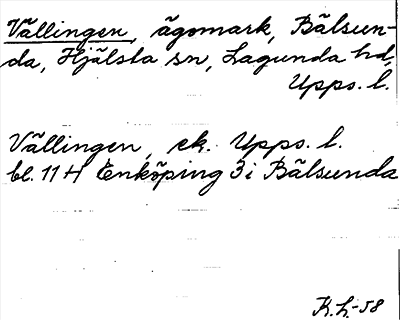 Vällingen, ägomark, Bälsun-
da, Hjälsta sn, Lagunda hd,
Upps. l.
Vällingen, ek. Upps. l.
bl. 11 H Enköping 3 i Bälsunda
K.L-58